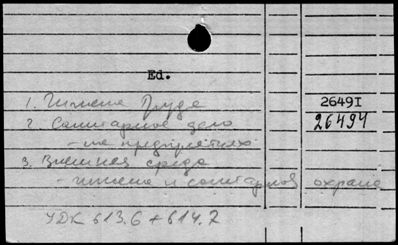 Ed.
1. Гигиена Труда 26491
2. Санитарное дело 26494
- на предприятиях
3. Внешняя среда
- гигиена и санитарная охрана
УДК 613.6 + 614.7